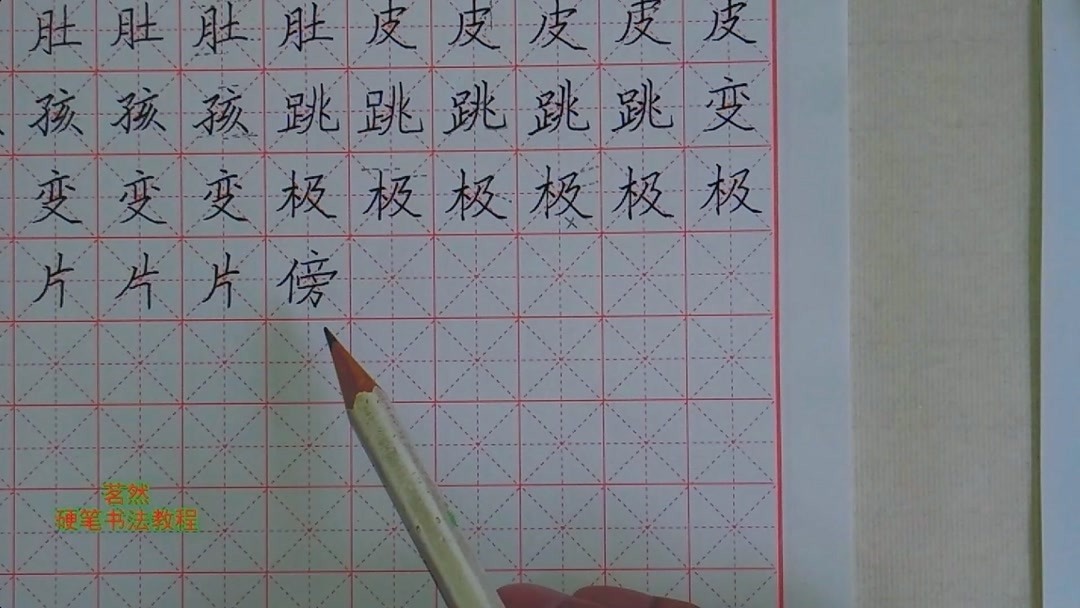 肚肚肚肚皮皮皮皮皮
孩孩孩跳跳跳跳跳变
变变变极极极极极极
片片片傍
茗然
硬笔书法教程